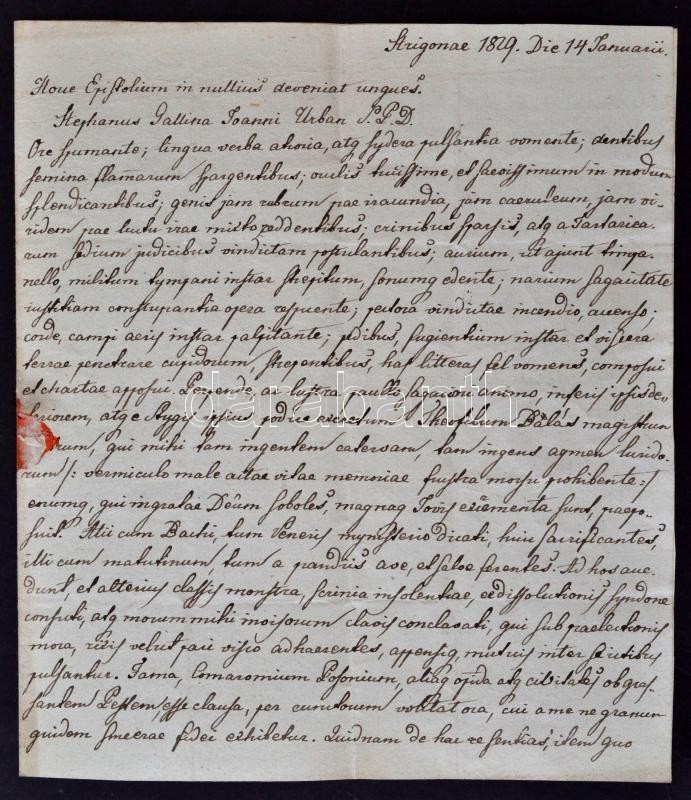 Strigonae 1829. Die 14 Januarii.
Hocce Epistolium in nullius deveniat ungves.
Stephanus Gallina Joanni Urban S.P.D.
Ore spumante; lingua verba atrocia, atq sydera pulsantia vomente; dentibus
semina flamarum spargentibus; oculis et in modum
splendicantibus; genis jam rubrum prae iracundia, jam caeruleum, jam vi-
ridem prae luctu irae mixto reddentibus; crinibus sparsis, atq a Tartarica-
rum sedium judicibus vindictam postulantibus; aurium, ut ajunt timpa-
nello, militum tympani instar strepitum, sonumq edente; narium sagacitate
justitiam constuprantia opera respuente; pectore vindictae incendio, accenso;
corde, campi aeris instar palpitante; pedibus, fugientium instar et viscera
terrae penetrare cupidorum, strepentibus, has litteras fel vomens, composui
et chartae apposui. animo, inferis ipsis de-
teriorem, atqe Stygis ipsius Theofilum Balás magistrum
qui mihi tam ingentem catervam, tam ingens agmen lurido-
rum /: vermiculo male actae vitae memoriae frustra morsu prohibente :/
qui ingratae Deûm soboles, magnaq Jovis excrementa sunt, praepo-
suit. Alii cum Bachi, tum Veneris mynisterio dicati, huic sacrificantes,
illi cum matutinum, tum a prandiis ave, et salve ferentes. Ad hos acce-
dunt, et alterius classis monstra, scrinia insolentiae, et dissolutionis syndone
consuti, atq morum mihi invisorum clavis conclavati, qui sub praelectionis
mora, velut adhaerentes, mutuis inter se ictibus
pulsantur. Fama, Comaromium Posonium, aliaq opida atq civitates ob gras-
santem Pestem esse clausa, per cunctorum volitat ora, cui a me ne granum
quidem sincerae fidei exhibetur. Quidnam de hac re sentias, item quo
darabanth